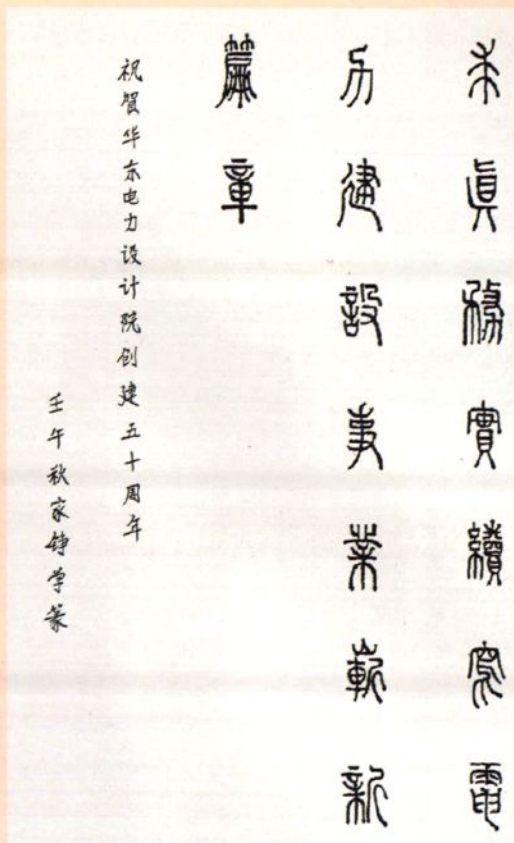 求真務實續寫電
力建設事業嶄新
篇章
祝贺华东电力设计院创建五十周年
壬午秋家铮学篆